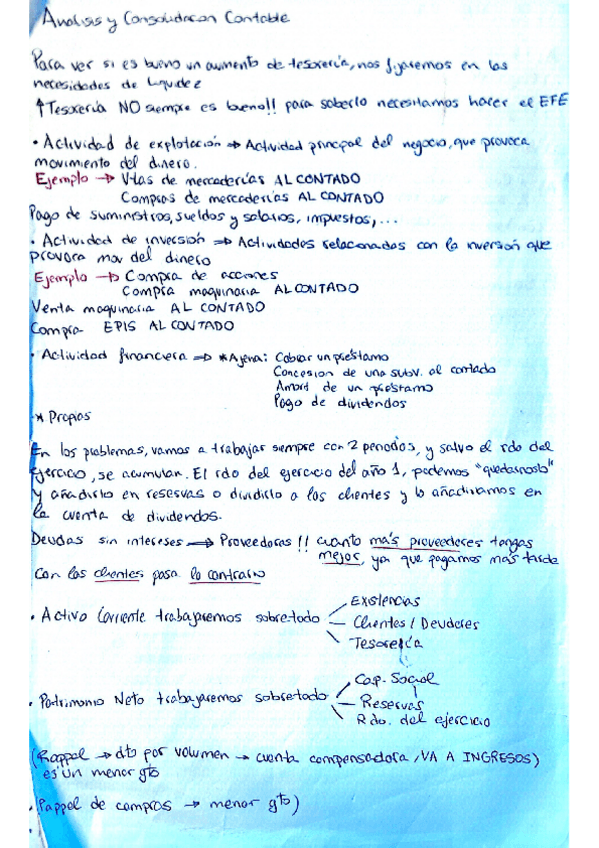 Analisis y Consolidacion Contable
Para ver si es bueno un aumento de tesorería, nos fijaremos en las
necesidades de liquidez
↑Tesorería NO siempre es bueno!! para saberlo necesitamos hacer el EFE
• Actividad de explotación → Actividad principal del negocio, que provoca
movimiento del dinero.
Ejemplo → Vtas de mercaderías AL CONTADO
Compras de mercaderías AL CONTADO
Pago de suministros, sueldos y salarios, impuestos,...
• Actividad de inversión → Actividades relacionadas con la inversión que
provoca mov del dinero
Ejemplo → Compra de acciones
Compra maquinaria AL CONTADO
Venta maquinaria AL CONTADO
Compra EPIS AL CONTADO
• Actividad financiera → * Ajena: Cobrar un préstamo
Concesion de una subv. al contado
Amort de un préstamo
Pago de dividendos
* Propios
En los problemas, vamos a trabajar siempre con 2 periodos, y salvo el rdo del
ejercicio, se acumulan. El rdo del ejercicio del año 1, podemos "quedarnoslo"
y añadirlo en reservas o dividirlo a los clientes y lo añadiríamos en
la cuenta de dividendos.
Deudas sin intereses → Proveedores !! cuanto más proveedores tengas
mejor, ya que pagamos más tarde
Con los clientes pasa lo contrario
• Activo Corriente trabajaremos sobretodo
Existencias
Clientes / Deudores
Tesorería
• Patrimonio Neto trabajaremos sobretodo
Cap. Social
Reservas
Rdo. del ejercicio
(Rappel → dto por volumen → cuenta compensadora, VA A INGRESOS)
es un menor gto
• Rappel de compras → menor gto)